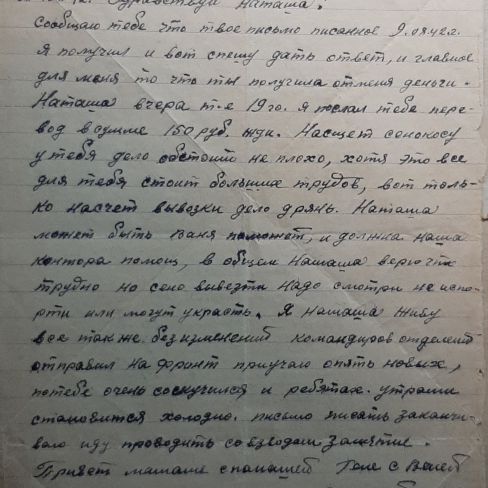 Здравствуй Наташа!
Сообщаю тебе что твое письмо писанное 9.08.42г.
я получил и вот спешу дать ответ, и главное
для меня то что ты получила от меня деньги.
Наташа вчера т-е 19го. я послал тебе пере-
вод в сумме 150 руб. жди. Насщет сенокосу
у тебя дело обстоит не плохо, хотя это все
для тебя стоит больших трудов, вот толь-
ко насчет вывозки дело дрянь. Наташа
может быть Ваня поможет, и должна наша
контора помощ, в общем Наташа верю что
трудно но сено вывезти надо смотри не испо-
рти или могут украсть. Я Наташа живу
все так же без изменений командиров отделений
отправил на фронт приучаю опять новых,
по тебе очень соскучился и ребятах. утрами
становится холодно. письмо писать заканчи-
ваю иду проводить со взводом занятие.
Привет мамаше с папашей Геле с Валей